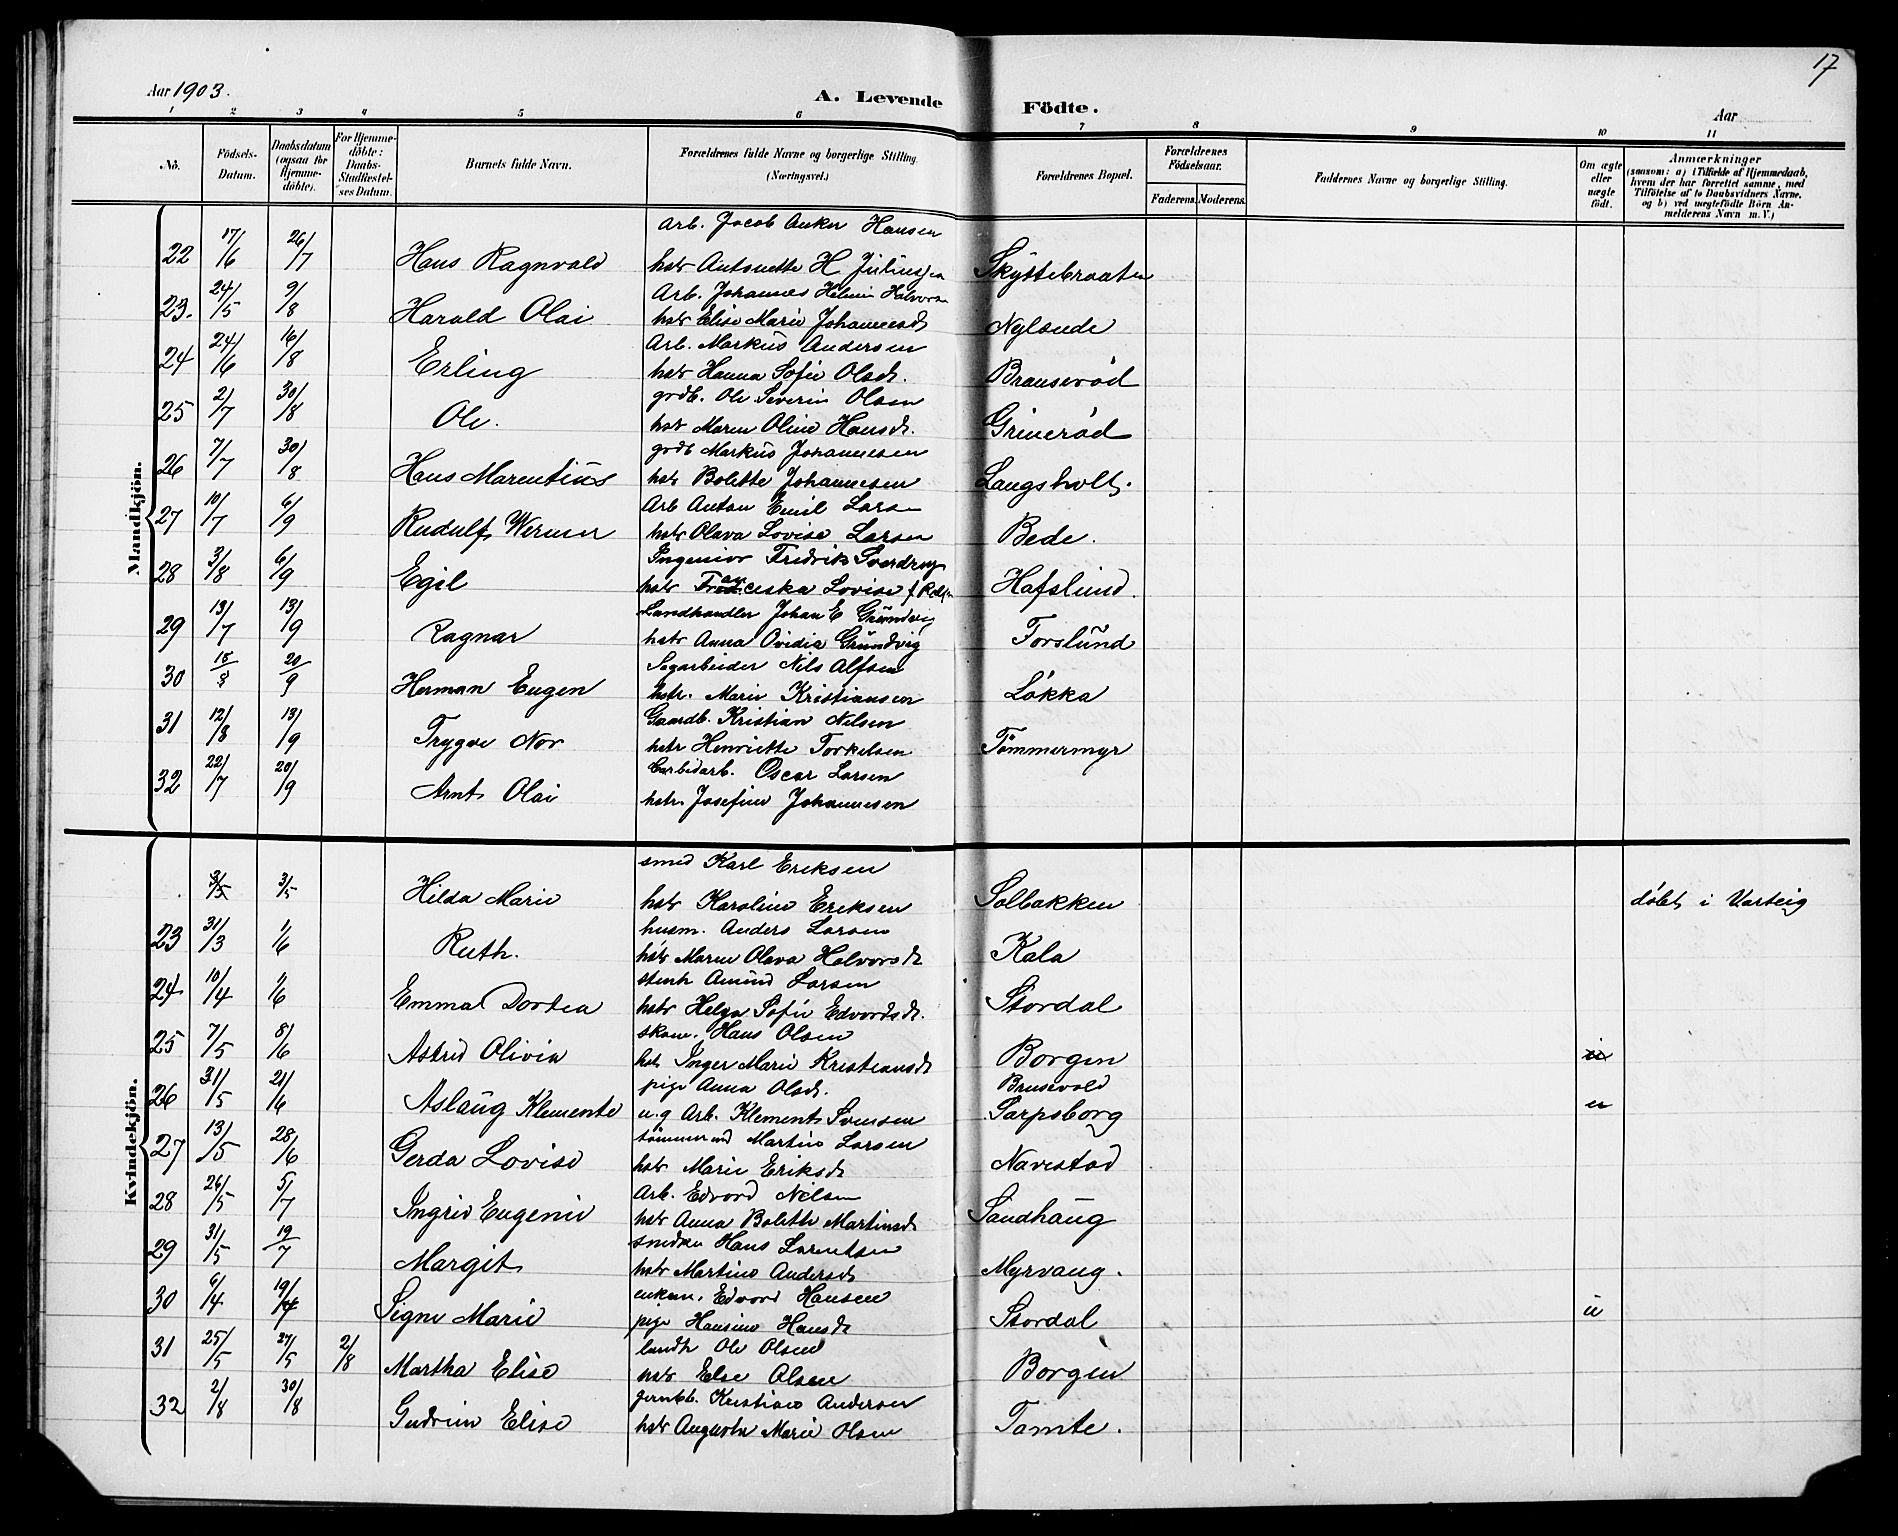 17
Aar 1903.
A. Levende Födte.
Aar
1 2 3 4 5 6 7 8 9 10 11
No.
Födsels-Datum.
Daabsdatum (ogsaa for Hjemme-döbte).
For Hjemme-döbte: Daabs-Stadfæstel-ses Datum.
Barnets fulde Navn.
Forældrenes fulde Navne og borgerlige Stilling. (Næringsvei.)
Forældrenes Bopæl.
Forældrenes Födselsaar.
Faderens. Moderens.
Faddernes Navne og borgerlige Stilling.
Om ægte eller uægte födt.
Anmærkninger (saasom: a) i Tilfælde af Hjemmedaab, hvem der har forrettet samme, med Tilföielse af to Daabsvidners Navne, og b) ved uægtefödte Börn An-melderens Navn m. V.)
Mandkjön.
Arb. Jacob Anker Hansen
22 17/6 26/7 Hans Ragnvald hstr Antonette H Juliusen Skyttebraaten
Arb. Johannes Helmin Halvorsn
23. 24/5 9/8 Harald Olai hstr Elise Marie Johannesdt Nylende
Arb. Markus Andersen
24 24/6 16/8 Erling hstr Hanna Sofie Olsdt. Brauserød
grdb. Ole Severin Olsen
25 2/7 30/8 Ole. hstr Maren Oline Hansdt. Grinerød
grdb Markus Johannesen
26 7/7 30/8 Hans Marentius hstr Bolette Johannesen Langsholt.
Arb Anton Emil Larsn
27 10/7 6/9 Rudulf Werner hstr Olava Lovise Larsen Bede.
Ingeniør Fredrik Sverdrup
28 3/8 6/9 Egil hstr Franceska Lovise f. Hafslund.
Landhandler Johan E Grundvig
29 13/7 13/9 Ragnar hstr Anna Ovidia Grundvig Torslund
Sagarbeider Nils Alfsen
30 18/8 20/9 Herman Eugen hstr. Marie Kristiansen Løkka
Gaardb. Kristian Nilsen
31 12/8 13/9 Trygve Nor hstr Henriette Torkelsen Tømmermyr
Carbidarb. Oscar Larsen
32 22/7 20/9 Arnt Olai hstr. Josefine Johannesen
Kvindekjön.
smed Karl Eriksen
3/5 3/5 Hilda Marie hstr Karoline Eriksen Solbakken døbt i Varteig
husm. Anders Larsen
23 31/3 1/6 Ruth. hstr Maren Olava Halvorsdt Kala
stenh Amund Larsen
24 10/4 1/6 Emma Dortea hstr Helga Sofie Edvardsdt. Stordal
skom. Hans Olsen
25 7/5 8/6 Astrid Olivia hstr Inger Marie Kristiansdt Borgen
pige Anna Olsdt. Brusevold
26 31/5 21/6 Aslaug Klemente u.g Arb. Klement Svensen Sarpsborg u
tømmermd Martin Larsen
27 13/5 28/6 Gerda Lovise hstr Marie Eriksdt Navestad
Arb. Edvard Nilsen
28 26/5 5/7 Ingrid Eugenie hstr Anna Bolette Martinsdt Sandhaug
snedker Hans Larentsen
29 31/5 19/7 Margit hstr Martine Andersdt Myrvang.
enkem. Edvard Hansen
30 6/4 19/4 Signe Marie pige Hansine Hansdt Stordal u
landh Ole Olsen
31 25/5 27/5 2/8 Martha Elise hstr Else Olsen Borgen
jernbb. Kristian Andersen
32 2/8 30/8 Gudrun Elise hstr Augusta Marie Olsen Tomte.